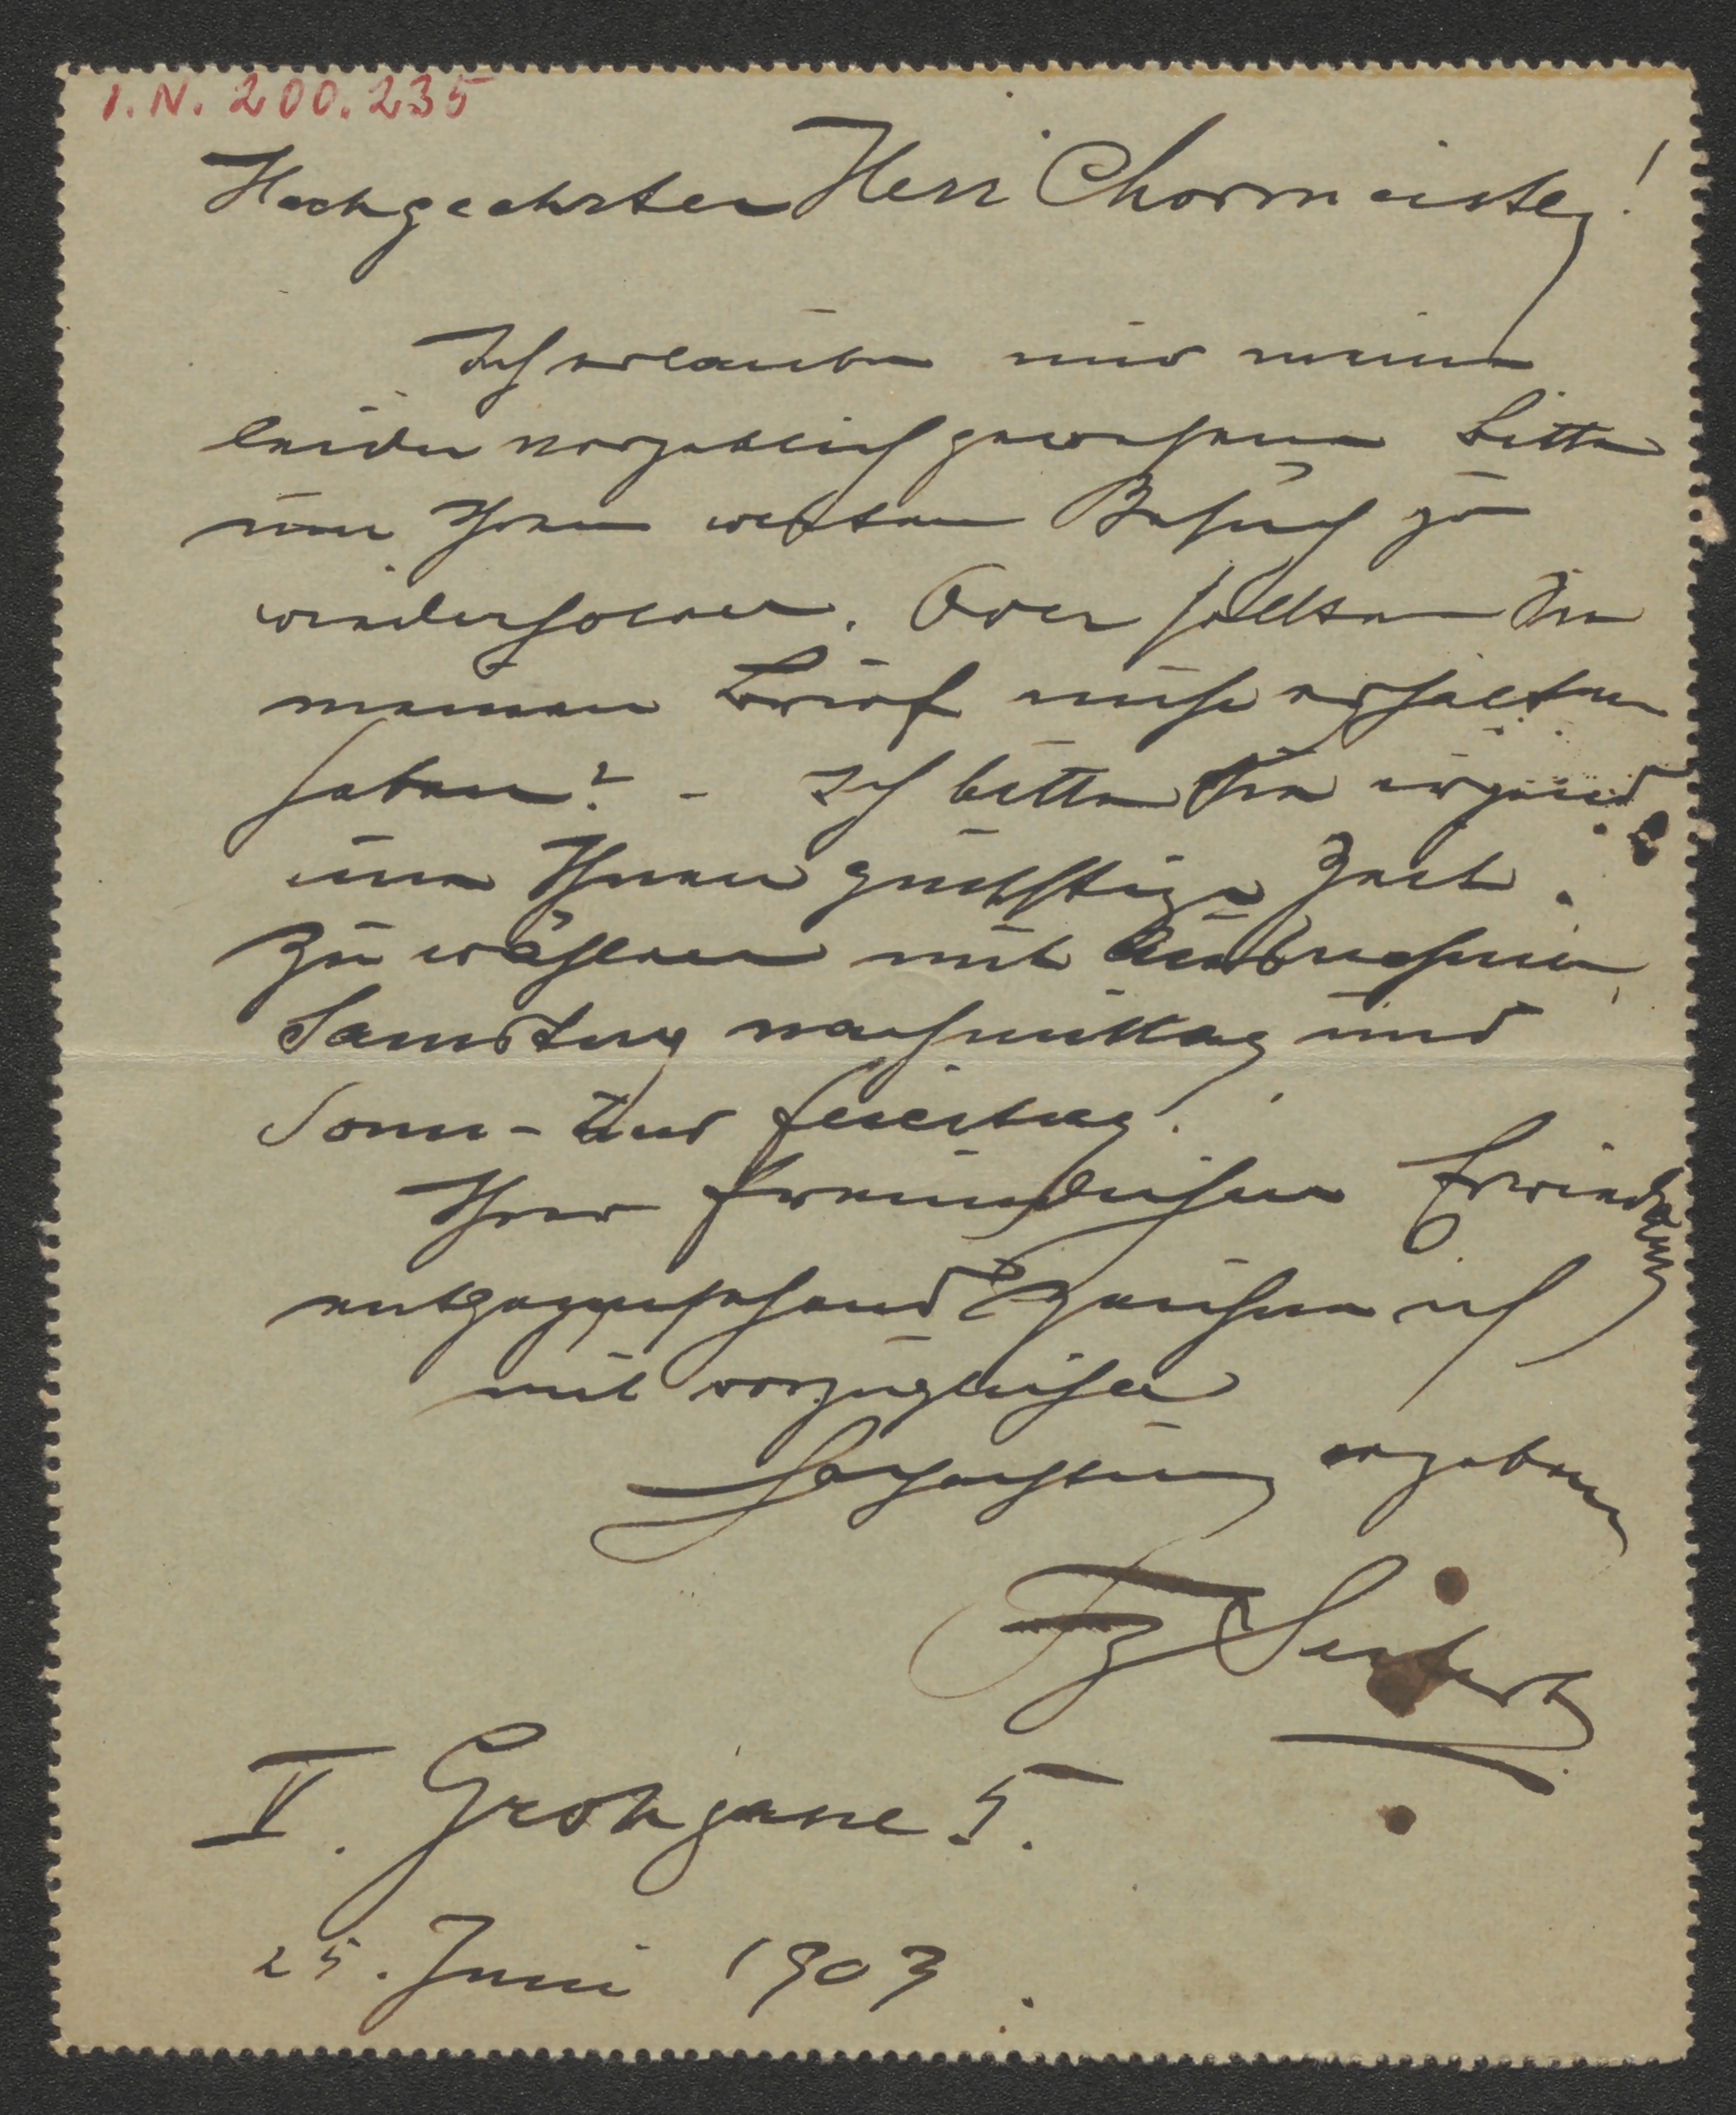 I. N. 200.235
Hochgeehrter Herr Chormeister!
Ich erlaube mir meine
leider vergeblich gewesene Bitte
um Ihren werten Besuch zu
wiederholen. Oder sollten Sie
meinen Brief nicht erhalten
haben? - Ich bitte Sie irgend
eine Ihnen günstige Zeit
zu wählen mit Ausnahme
Samstag nachmittag und
Sonn- und Feiertag.
Ihrer freundlichen
entgegensehend zeichne ich
mit vorzüglicher
Hochachtung ergebens
Fz Seifert
V. Grohgasse 5.
25. Juni 1903.